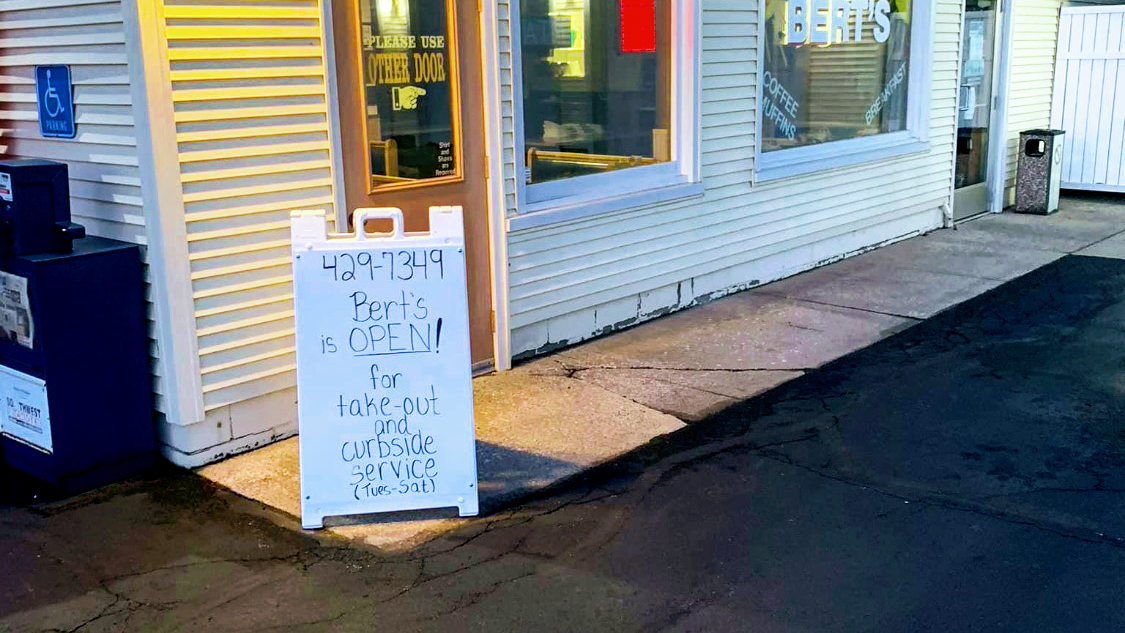 PARKING
PLEASE USE
OTHER DOOR
Shirt
and
Shoes
are
Required
BERT'S
COFFEE
MUFFINS
BREAKFAST
429-7349
Bert's
is OPEN!
for
take-out
and
curbside
service
(Tues-Sat)